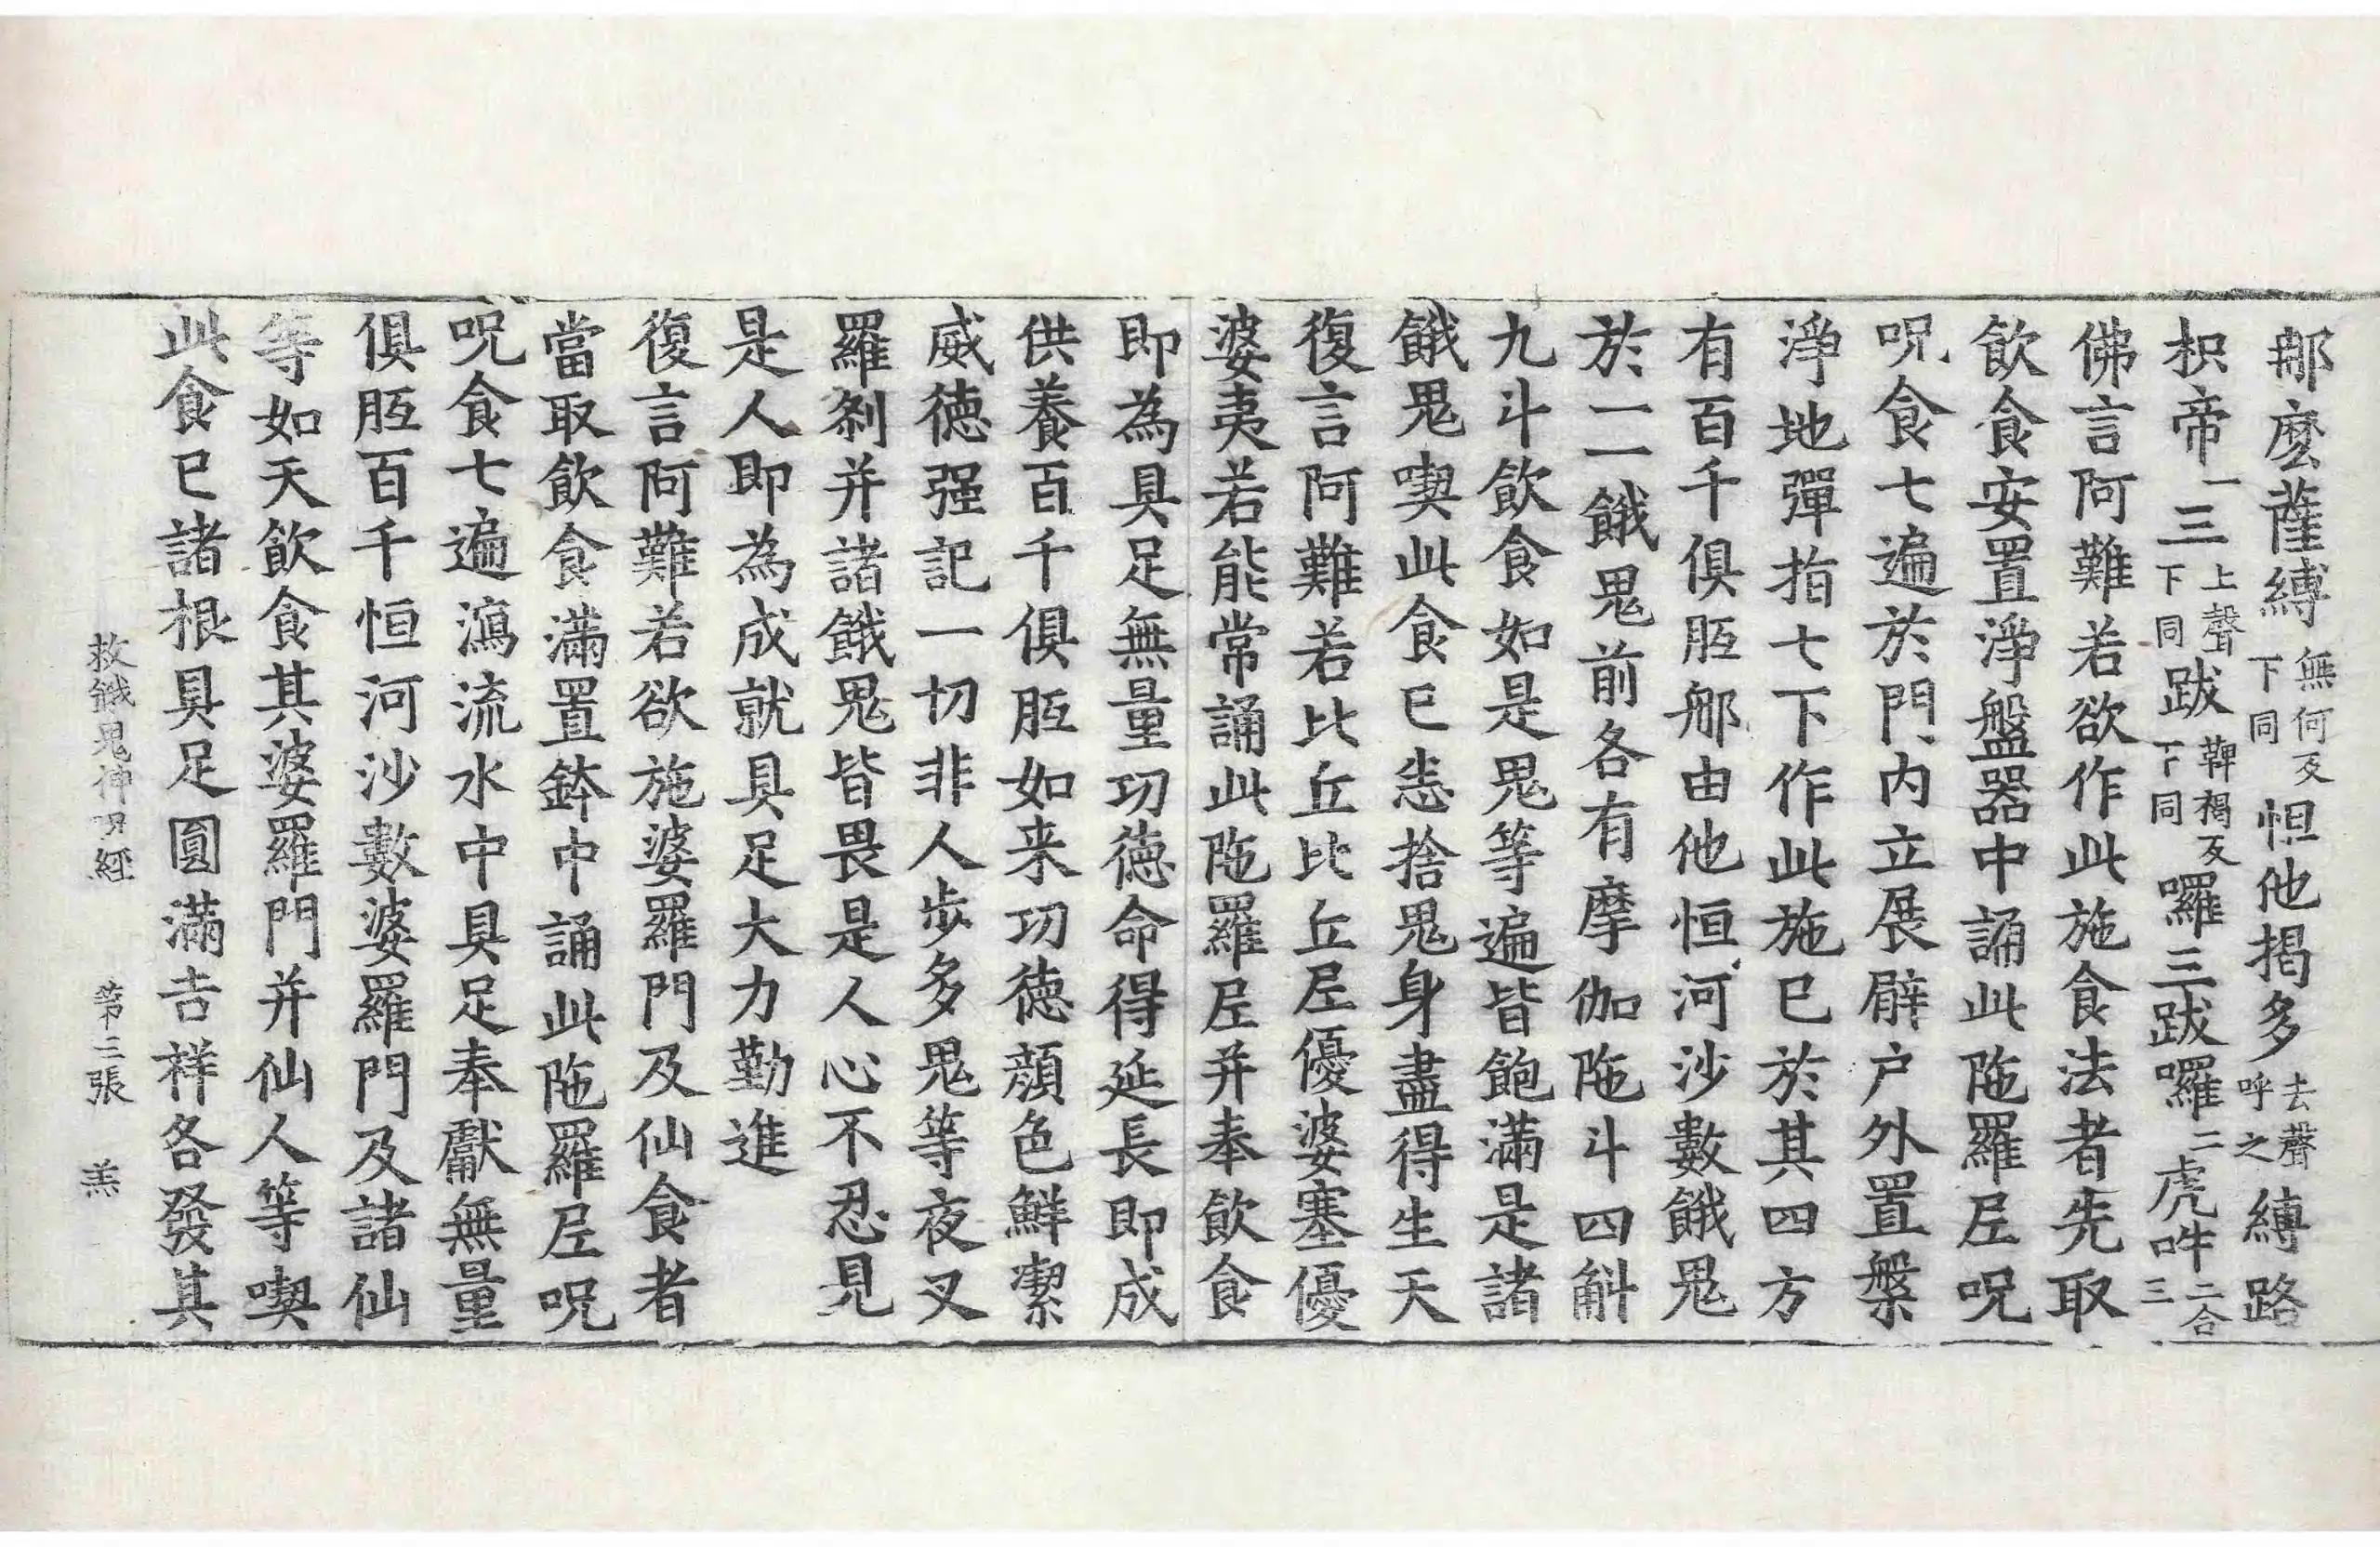 那麼薩縛無何反下同怛他揭多去聲呼之縛路
枳帝一三上聲下同跋鞞褐反下同囉三跋囉二虎𤙖二合三
佛言阿難若欲作此施食法者先取
飲食安置淨盤器中誦此陁羅尼呪
呪食七遍於門內立展臂户外置槃
淨地彈指七下作此施已於其四方
有百千俱胝那由他恒河沙數餓鬼
於一一餓鬼前各有摩伽陁斗四斛
九斗飲食如是鬼等遍皆飽滿是諸
餓鬼喫此食已悉捨鬼身盡得生天
復言阿難若比丘比丘尼優婆塞優
婆夷若能常誦此陁羅尼并奉飲食
即為具足無量功徳命得延長即成
供養百千俱胝如来功徳顔色鮮潔
威徳强記一切非人步多鬼等夜叉
羅剎并諸餓鬼皆畏是人心不忍見
是人即為成就具足大力勤進
復言阿難若欲施婆羅門及仙食者
當取飲食滿置鉢中誦此陁羅尼呪
呪食七遍瀉流水中具足奉獻無量
俱胝百千恒河沙數婆羅門及諸仙
等如天飲食其婆羅門并仙人等喫
此食已諸根具足圓滿吉祥各發其
救餓鬼神呪經 第二張 羔